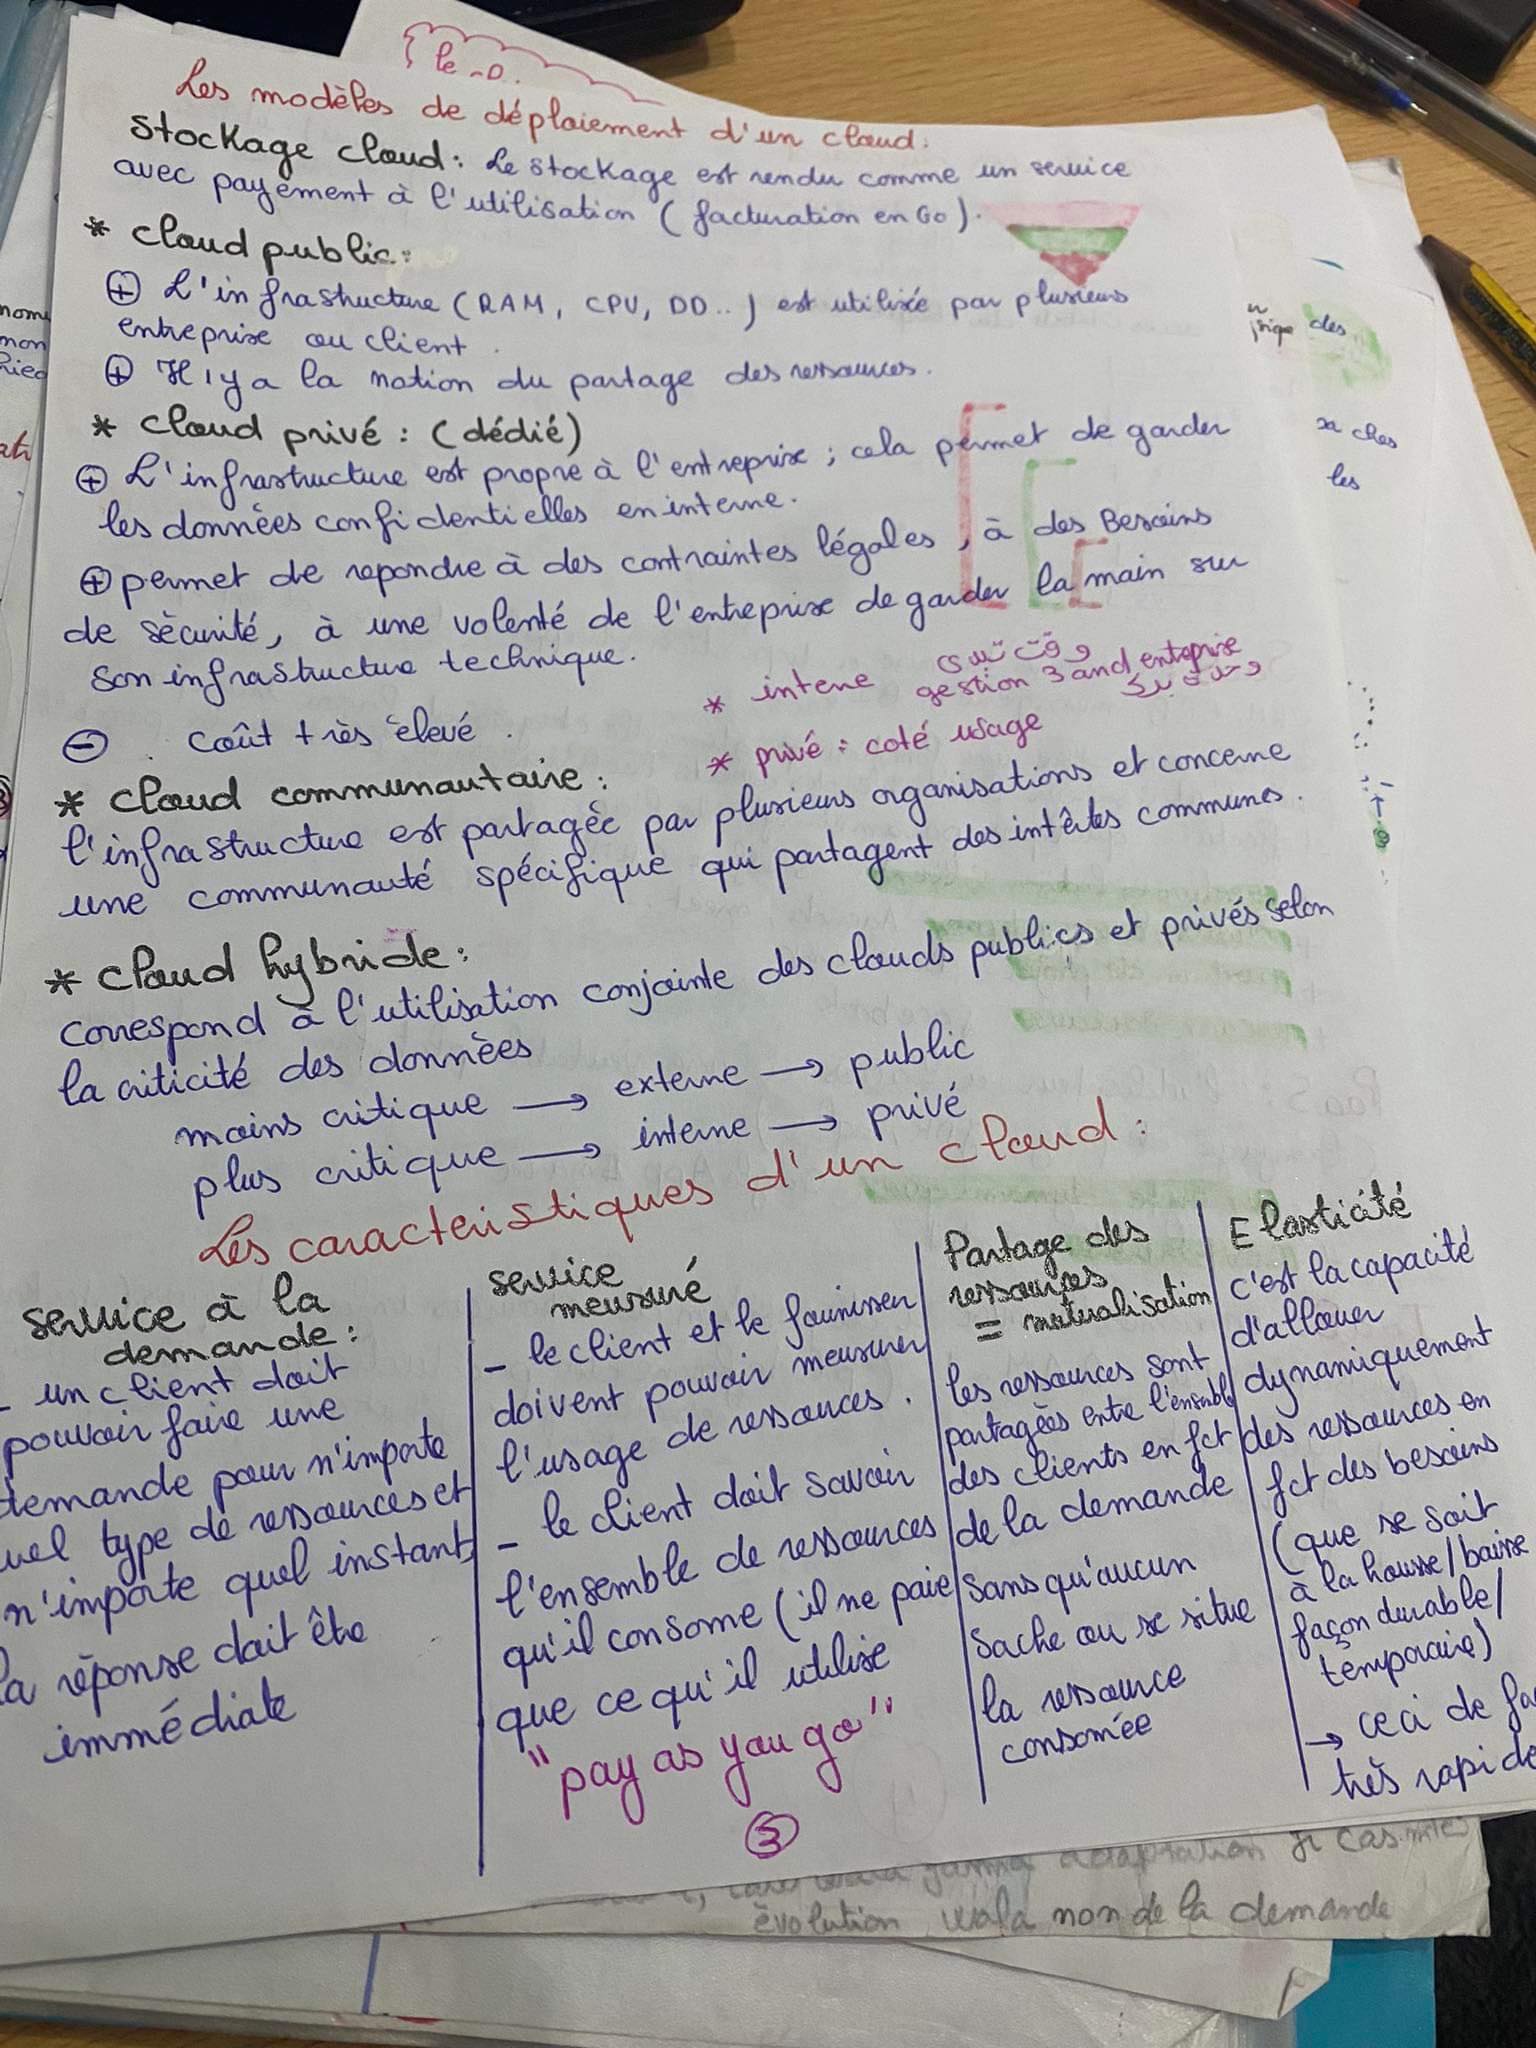 le
Les modèles de déploiement d'un cloud:
Stockage cloud: Le stockage est rendu comme un service
avec payement à l'utilisation (facturation en Go).
* cloud public:
⊕ L'infrastructure (RAM, CPU, DD..) est utilisée par plusieurs
entreprise ou client.
⊕ Il y a la notion du partage des ressources.
* cloud privé: (dédié)
⊕ L'infrastructure est propre à l'entreprise; cela permet de garder
les données confidentielles en interne.
⊕ permet de repondre à des contraintes légales, à des Besoins
de sécurité, à une volenté de l'entreprise de garder la main sur
son infrastructure technique.
* interne
gestion 3and entreprise
* privé: coté usage
⊖ . coût très élevé.
* cloud communautaire:
l'infrastructure est partagée par plusieurs organisations et concerne
une communauté spécifique qui partagent des intêrtes communes.
* cloud hybride:
correspond à l'utilisation conjointe des clouds publics et privés selon
la criticité des données
moins critique → externe → public
plus critique → interne → privé
Les caracteristiques d'un cloud:
service à la
demande:
- un client doit
pouvoir faire une
demande pour n'importe
uel type de ressources et
n'importe quel instant,
la réponse doit être
immédiate
service
meusuré
- le client et le fournisseu
doivent pouvoir meusurer
l'usage de ressources.
- le client doit savoir
l'ensemble de ressources
qu'il consome (il ne paie
que ce qu'il utilise
"pay as you go"
3
Partage des
ressources
= muturalisation
les ressources sont
partagées entre l'ensemble
des clients en fct
de la demande
sans qu'aucun
sache ou se situe
la ressource
consomée
Elasticité
c'est la capacité
d'allouer
dynamiquement
des ressources en
fct des besoins
(que se soit
à la housse/baisse
façon durable/
temporaire)
→ ceci de fa
très rapide
des
les
adaptation
évolution wala non de la demande